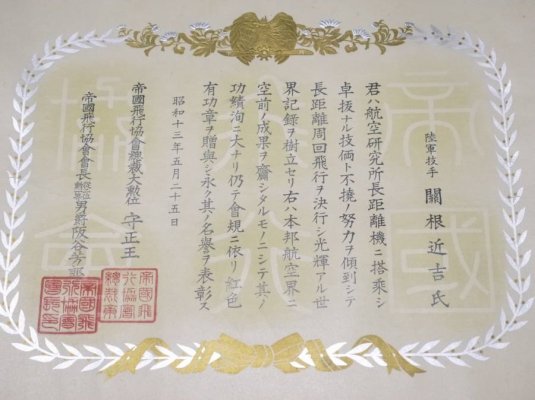 陸軍技手 關根近吉氏
君ハ航空研究所長距離機ニ搭乘シ
卓拔ナル技倆ト不撓ノ努力ヲ傾到シテ
長距離周回飛行ヲ決行シ光輝アル世
界記録ヲ樹立セリ右ハ本邦航空界ニ
空前ノ成果ヲ齎シタルモノニシテ其ノ
功績洵ニ大ナリ仍テ會規ニ依リ紅色
有功章ヲ贈與シ永ク其ノ名譽ヲ表彰ス
昭和十三年五月二十五日
帝國飛行協會總裁大勲位 守正王
帝國飛行協會會長 男爵阪谷芳郎